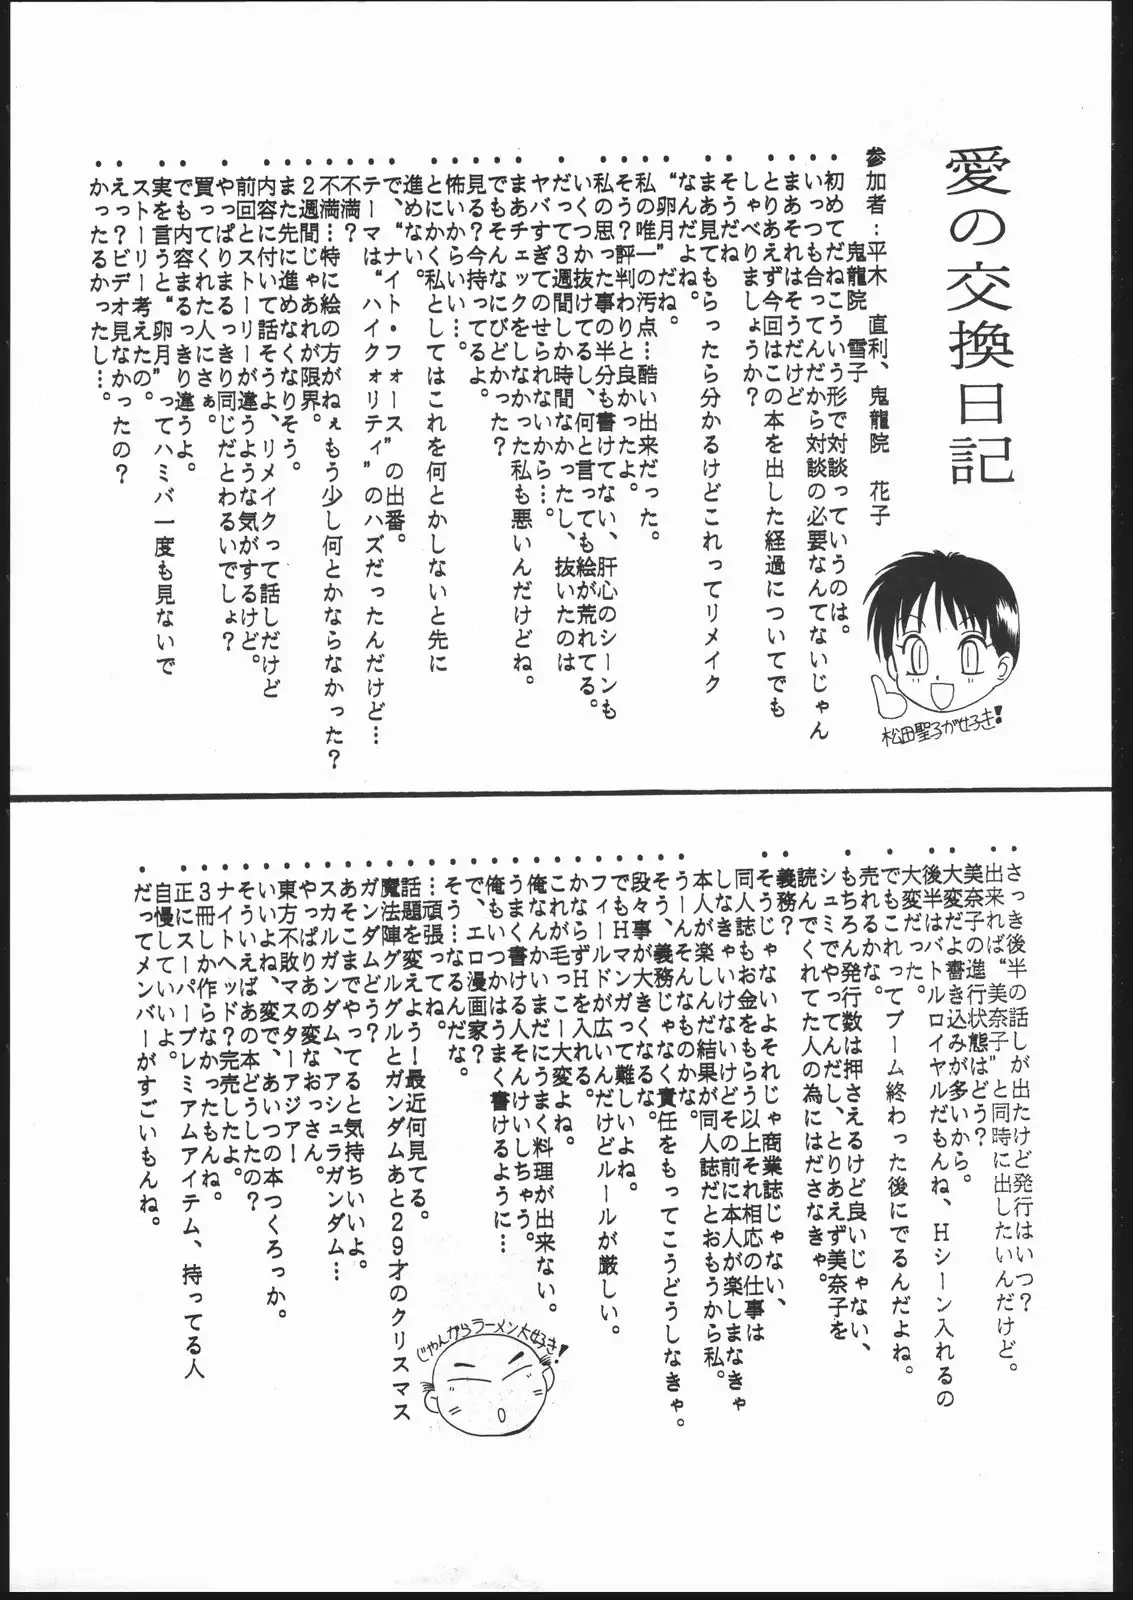 愛の交換日記
参加者：平木　直利、鬼龍院　花子
鬼龍院　雪子
・初めてだねこういう形で対談っていうのは。
・いっつも合ってんだから対談の必要なんてないじゃん
・まあそれはそうだけど
とりあえず今回はこの本を出した経過についてでも
しゃべりましょうか？
・そうだね
・まあ見てもらったら分かるけどこれってリメイク
なんだよね。
・“卵月”だね。
・私の唯一の汚点…酷い出来だった。
・そう？評判わりと良かったよ。
・私の思った事の半分も書けてない、肝心のシーンも
いくつか抜けてるし、何と言っても絵が荒れてる。
・だって３週間しか時間なかったし、抜いたのは
ヤバすぎてのせられないから…。
・まあチェックをしなかった私も悪いんだけどね。
・でもそんなにひどかった？
・見る？今持ってるよ。
・怖いからいい…。
・とにかく私としてはこれを何とかしないと先に
進めない。
・で、“ナイト・フォース”の出番。
・テーマは“ハイクォリティ”のハズだったんだけど…
・不満？
・不満…特に絵の方がねぇもう少し何とかならなかった？
・２週間じゃあれが限界。
・また先に進めなくなりそう。
・内容に付いて話そうよ、リメイクって話しだけど
前回とストーリーが違うような気がするけど。
・やっぱりまるっきり同じだとわるいでしょ？
買ってくれた人にさぁ。
・でも内容まるっきり違うよ。
・実を言うと“卵月”ってハミバ一度も見ないで
ストーリー考えたの。
・えっ？ビデオ見なかったの？
・かったるかったし…。
松田聖子が好き！
・さっき後半の話しが出たけど発行はいつ？
・出来れば“美奈子”と同時に出したいんだけど。
・美奈子の進行状態はどう？
・大変だよ書き込みが多いから。
・後半はバトルロイヤルだもんね、Ｈシーン入れるの
大変だった。
・でもこれってブーム終わった後にでるんだよね。
売れるかな。
・もちろん発行数は押さえるけど良いじゃない、
シュミでやってんだし、とりあえず美奈子を
読んでくれてた人の為にはださなきゃ。
・義務？
・そうじゃないよそれじゃ商業誌じゃない、
同人誌もお金をもらう以上それ相応の仕事は
しなきゃいけないけどその前に本人が楽しまなきゃ
本人が楽しんだ結果が同人誌だとおもうから私。
・うーんそんなものかな。
・そう、義務じゃなく責任をもってこうどうしなきゃ。
・段々事が大きくなるな。
・でもＨマンガって難しいよね。
・フィールドが広いんだけどルールが厳しい。
・かならずＨを入れる。
・これが毛っこー大変よね。
・俺なんかいまだにうまく料理が出来ない。
・うまく書ける人そんけいしちゃう。
・俺もいつかはうまく書けるように…
・で、エロ漫画家？
・そう…なるんだな。
・…頑張ってね。
・話題を変えよう！最近何見てる。
・魔法陣グルグルとガンダムあと２９才のクリスマス
・ガンダムどう？
・あそこまでやってると気持ちいいよ。
・スカルガンダム、アシュラガンダム…
・やっぱりあの変なおっさん。
・東方不敗マスターアジアー
・いいよね、変で、あいつの本つくろっか。
・そういえばあの本どうしたの？
・ナイトヘッド？完売したよ。
・３冊しか作らなかったもんね。
・正にスーパープレミアムアイテム、持ってる人
自慢していいよ。
・だってメンバーがすごいもんね。
じゃんがらラーメン大好き！